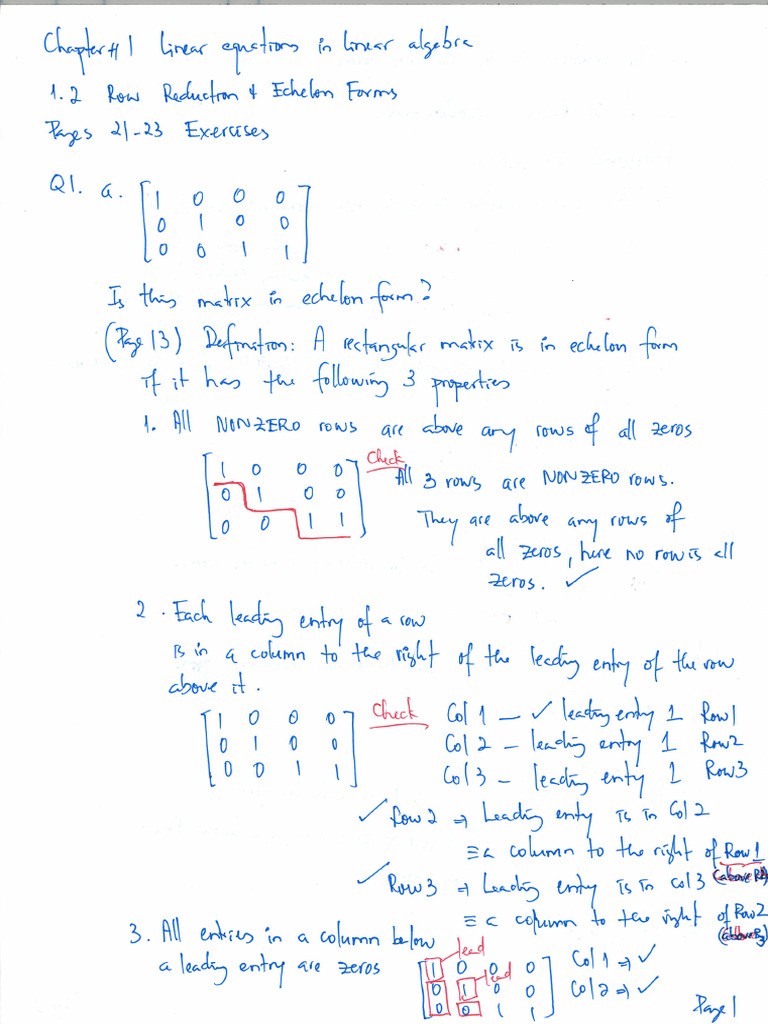 Chapter # 1 Linear equations in linear algebra
1.2 Row Reduction & Echelon Forms
Pages 21-23 Exercises
Q1. a. [1 0 0 0
0 1 0 0
0 0 1 1]
Is this matrix in echelon form?
(Page 13) Definition: A rectangular matrix is in echelon form
if it has the following 3 properties
1. All NONZERO rows are above any rows of all zeros
[1 0 0 0
0 1 0 0
0 0 1 1]
Check
All 3 rows are NONZERO rows.
They are above any rows of
all zeros, here no row is all
zeros. ✓
2. Each leading entry of a row
is in a column to the right of the leading entry of the row
above it.
[1 0 0 0
0 1 0 0
0 0 1 1]
Check
Col 1 – ✓ leading entry 1 Row1
Col 2 – leading entry 1 Row2
Col 3 – leading entry 1 Row3
✓ Row 2 ⇒ Leading enty is in Col 2
≡ a column to the right of Row 1
(above R2)
✓ Row 3 ⇒ Leading entry is in col 3
≡ a column to the right of Row 2
(above R3)
3. All entries in a column below
a leading entry are zeros
lead
[1 0 0 0
lead
0 1 0 0
0 0 1 1]
Col 1 ⇒ ✓
Col 2 ⇒ ✓
Page 1